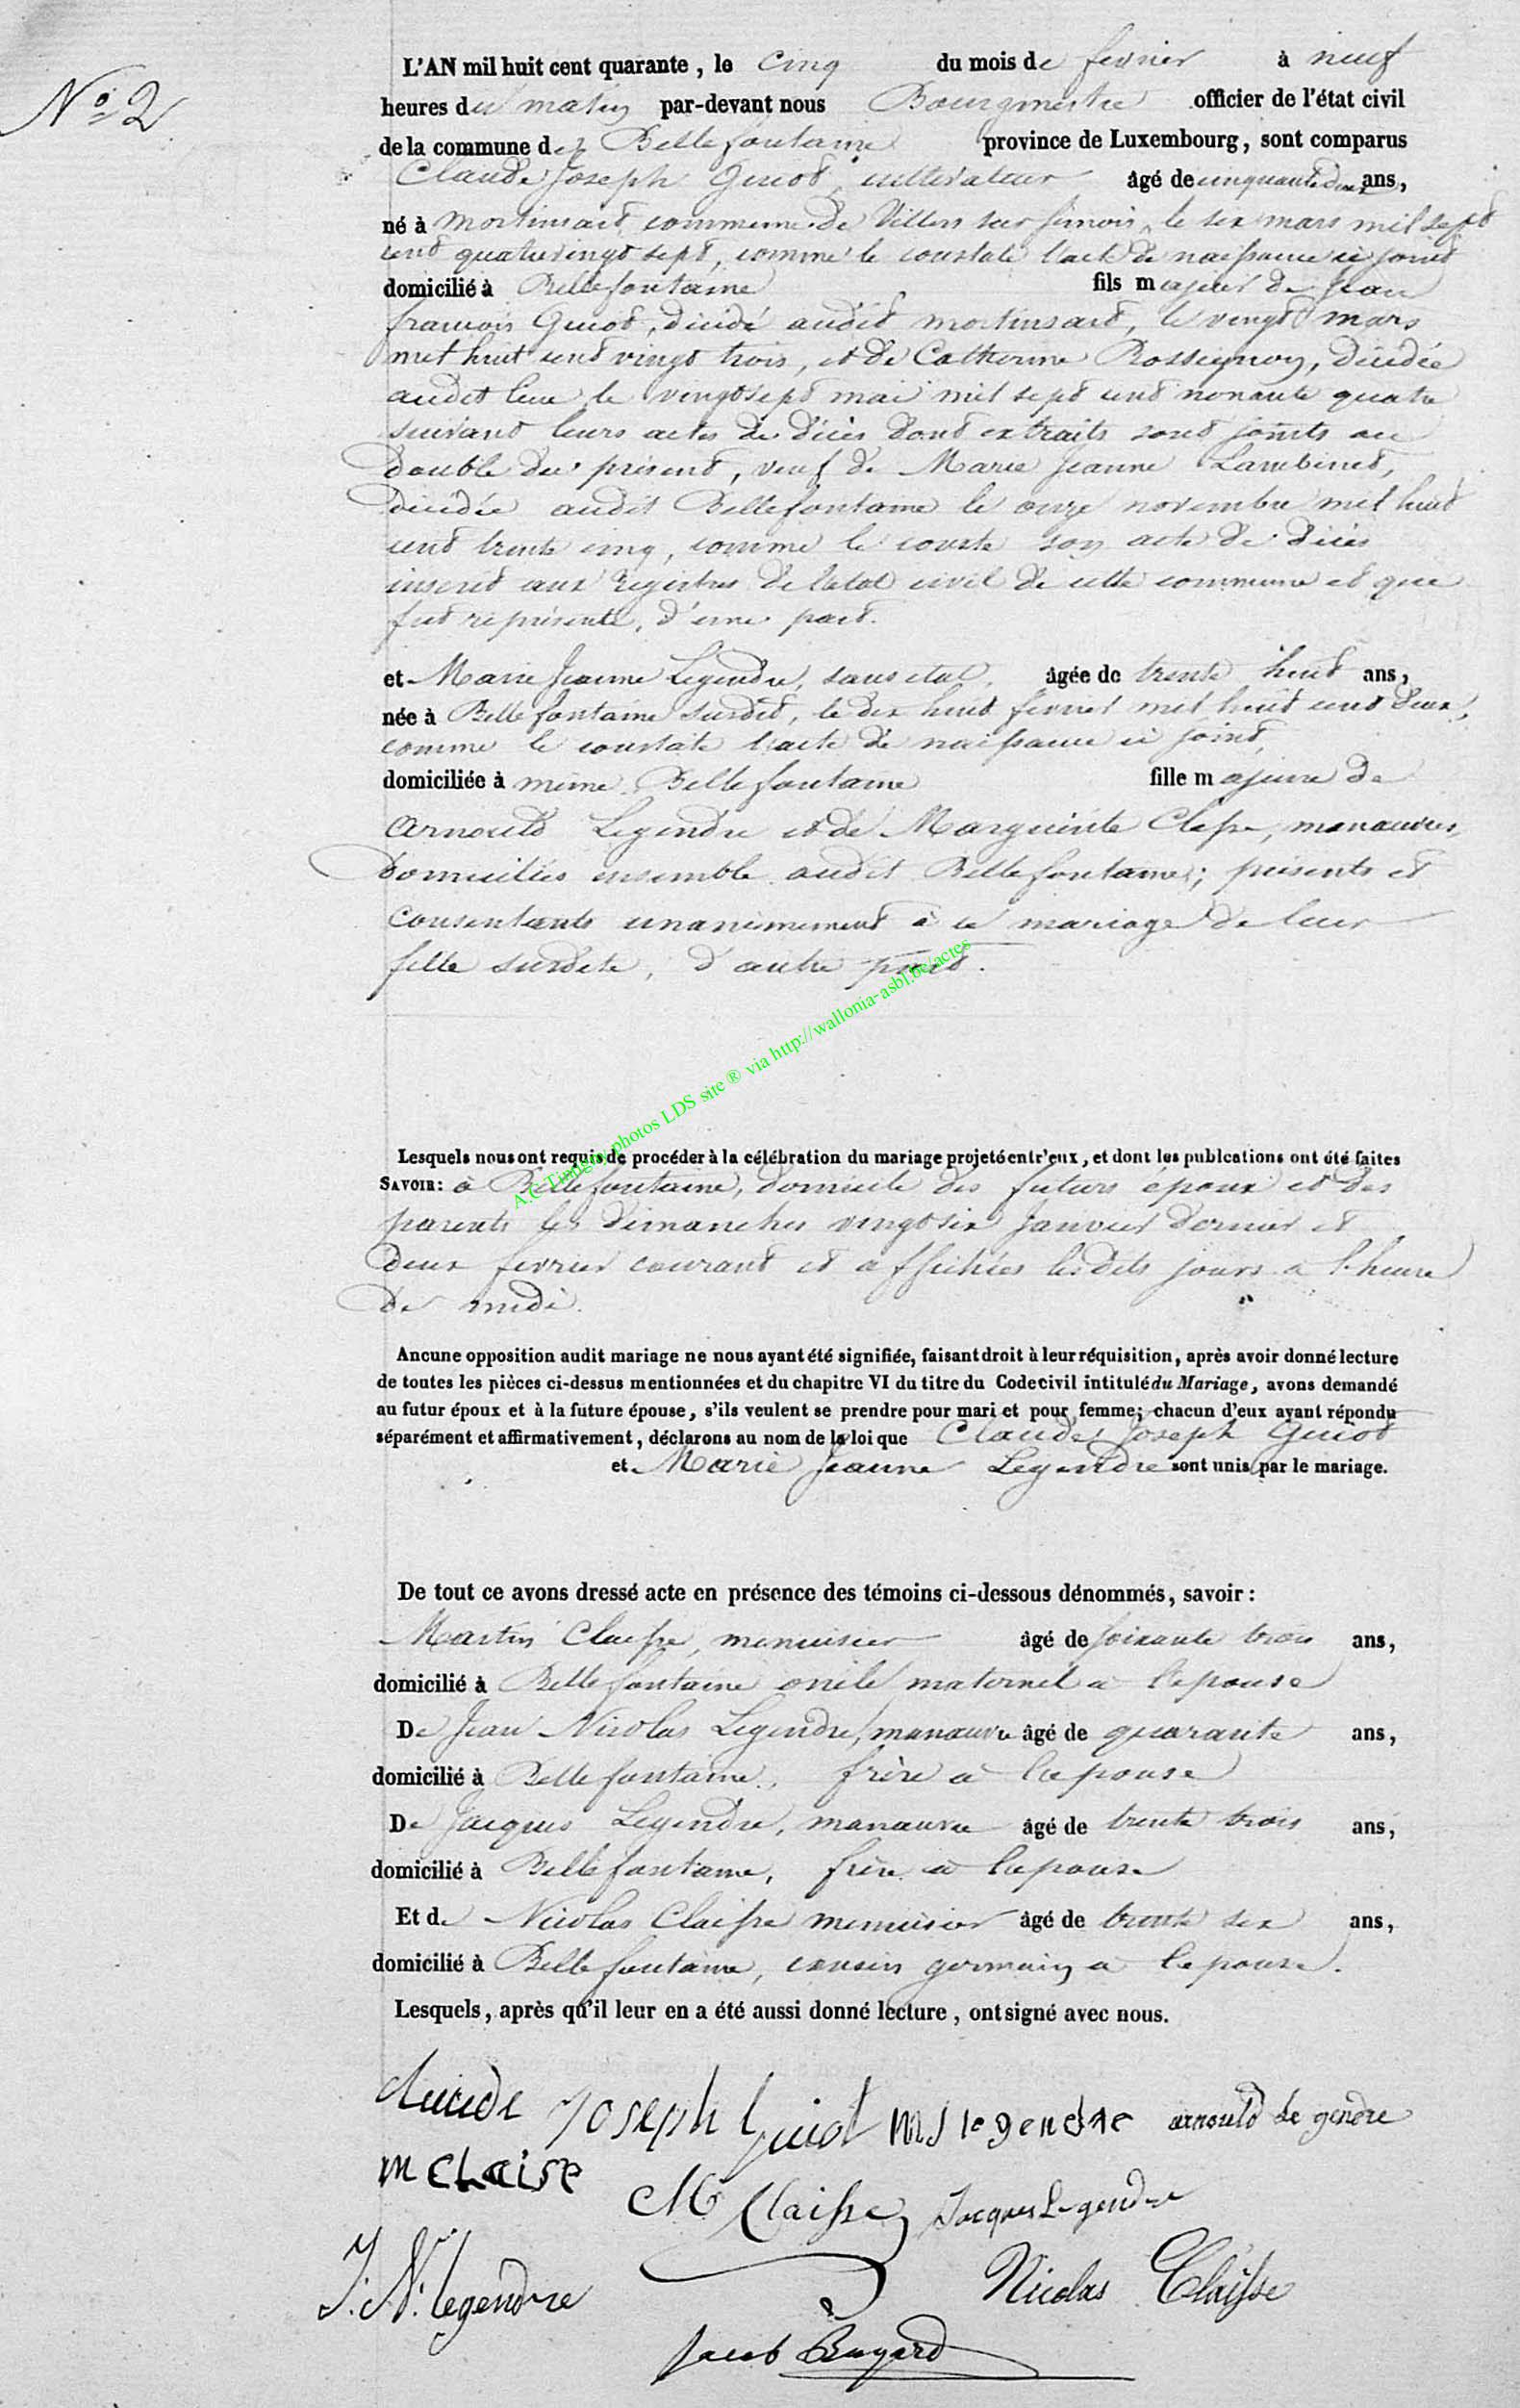 N° 2
L'AN mil huit cent quarante, le Cinq du mois de fevrier à neuf
heures du matin par-devant nous Bourgmestre officier de l'état civil
de la commune de Bellefontaine province de Luxembourg, sont comparus
Claude Joseph Guiot, cultivateur âgé de cinquante deux ans,
né à Mortinsart commune de Villers sur Semois, le six mars mil sept
cent quatrevingt sept, comme le constate l'acte de naissance ci joint
domicilié à Bellefontaine fils majeur de Jean
francois Guiot, décidé audit mortinsart, le vingt mars
mil huit cent vingt trois, et de Catherine Rossignon, décidée
audit lieu le vingt sept mai mil sept cent nonante quatre
suivant leurs actes de décès dont extraits sont joints au
double du présent, veuf de Marie Jeanne Lambinet,
décidée audit Bellefontaine le onze novembre mil huit
cent trente cinq, comme le conste son acte de décès
inscrit aux registres de l'etat civil de cette commune et que
fut représenté, d'une part.
et Marie Jeanne Legendre, sans etat, âgée de trente huit ans,
née à Bellefontaine susdit, le dix huit fevrier mil huit cent deux,
comme le constate l'acte de naissance ci joint,
domiciliée à même Bellefontaine fille majeure de
Arnould Legendre et de Marguerite Clesse, manœuvres,
domiciliés ensemble audit Bellefontaine; présents et
consentants unanimement à ce mariage de leur
fille susdite, d'autre part.
A.C Tintigny photos LDS site ® via http://wallonia-asbl.be/actes
Lesquels nous ont requis de procéder à la célébration du mariage projeté entr'eux, et dont les publcations ont été faites
SAVOIR: à Bellefontaine, domicile des futurs époux et des
parents les dimanches vingt six janvier dernier et
deux fevrier courant et affichées lesdits jours à l'heure
de midi.
Ancune opposition audit mariage ne nous ayant été signifiée, faisant droit à leur réquisition, après avoir donné lecture
de toutes les pièces ci-dessus mentionnées et du chapitre VI du titre du Code civil intitulé du Mariage, avons demandé
au futur époux et à la future épouse, s'ils veulent se prendre pour mari et pour femme; chacun d'eux ayant répondu
séparément et affirmativement, déclarons au nom de la loi que Claude Joseph Guiot
et Marie Jeanne Legendre sont unis par le mariage.
De tout ce avons dressé acte en présence des témoins ci-dessous dénommés, savoir:
Martin Claesse, menuisier âgé de soixante trois ans,
domicilié à Bellefontaine oncle maternel a l'epouse
De Jean Nicolas Legendre, manœuvre âgé de quarante ans,
domicilié à Bellefontaine, frère a l'epouse
De Jacques Legendre, manœuvre âgé de trente trois ans,
domicilié à Bellefontaine, frère a l'epouse
Et de Nicolas Claisse menuisier âgé de trente six ans,
domicilié à Bellefontaine, cousin germain a l'epouse.
Lesquels, après qu'il leur en a été aussi donné lecture, ont signé avec nous.
Claude Joseph Guiot MJ legendre arnould Le gendre
M CLaise M Claisse Jacques Legendre
J. N. legendre Nicolas Claisse
Jacob Bugard